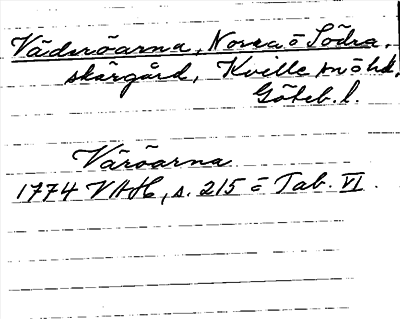 Väderöarna, Norra o Södra
skärgård, Kville sn o hd,
Göteb. l.
Väröarna
1774 VAH, s. 215 o Tab. VI.